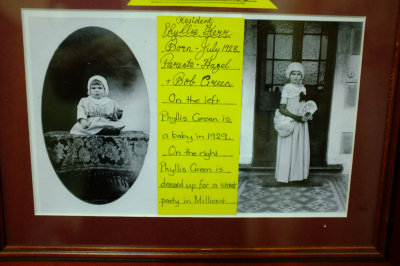 Resident
Phyllis Kerr
Born - July 1928.
Parents - Hazel
+ Bob Green
On the left
Phyllis Green is
a baby in 1929.
On the right
Phyllis Green is
dressed up for a street
party in Millicent.